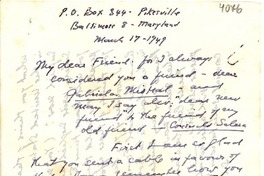 4076
P.O. Box 344 - Pikesville
Baltimore 8 - Maryland
March 17 - 1949
My dear Friend: for I always
considered you a friend - dear
Gabriela Mistral - and
may I say also: "dear new
friend to the friend of my
old friend - Consuelo Saleva
First I am so glad
that you sent a cable in favour of
remember how you